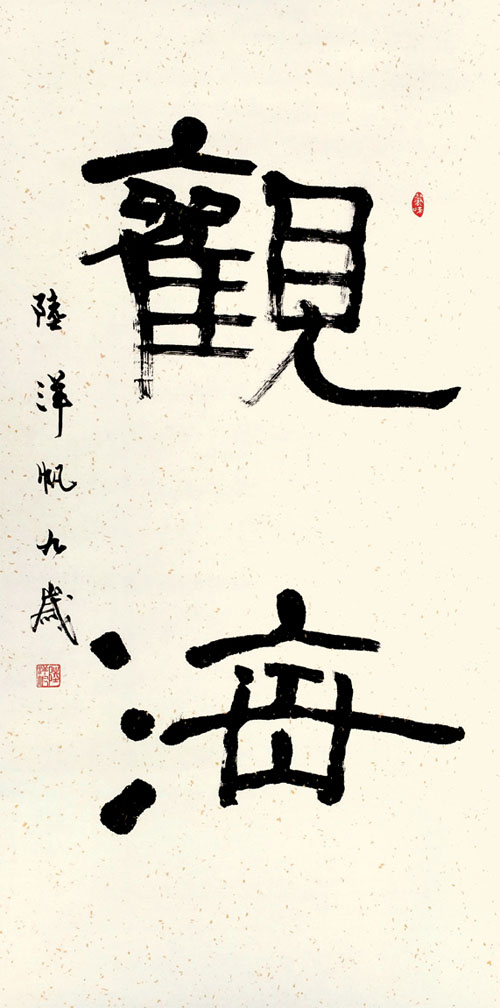 觀海
陸洋帆九歲